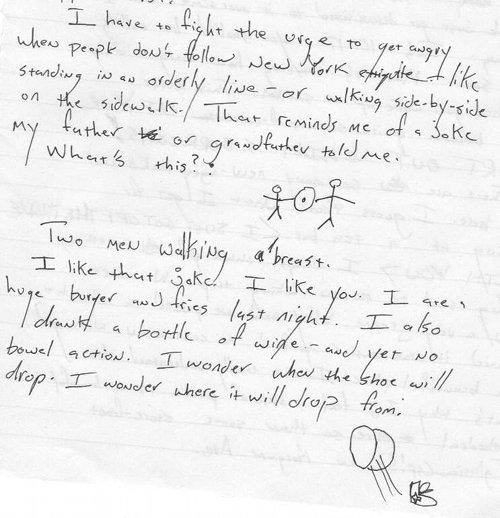 I have to fight the urge to get angry
when people don't follow New York etiquite - like
standing in an orderly line - or walking side-by-side
on the sidewalk. That reminds me of a joke
my father or grandfather told me.
What's this?:
Two men walking a'breast.
I like that joke. I like you. I ate a
huge burger and fries last night. I also
drank a bottle of wine - and yet no
bowel action. I wonder when the shoe will
drop. I wonder where it will drop from.